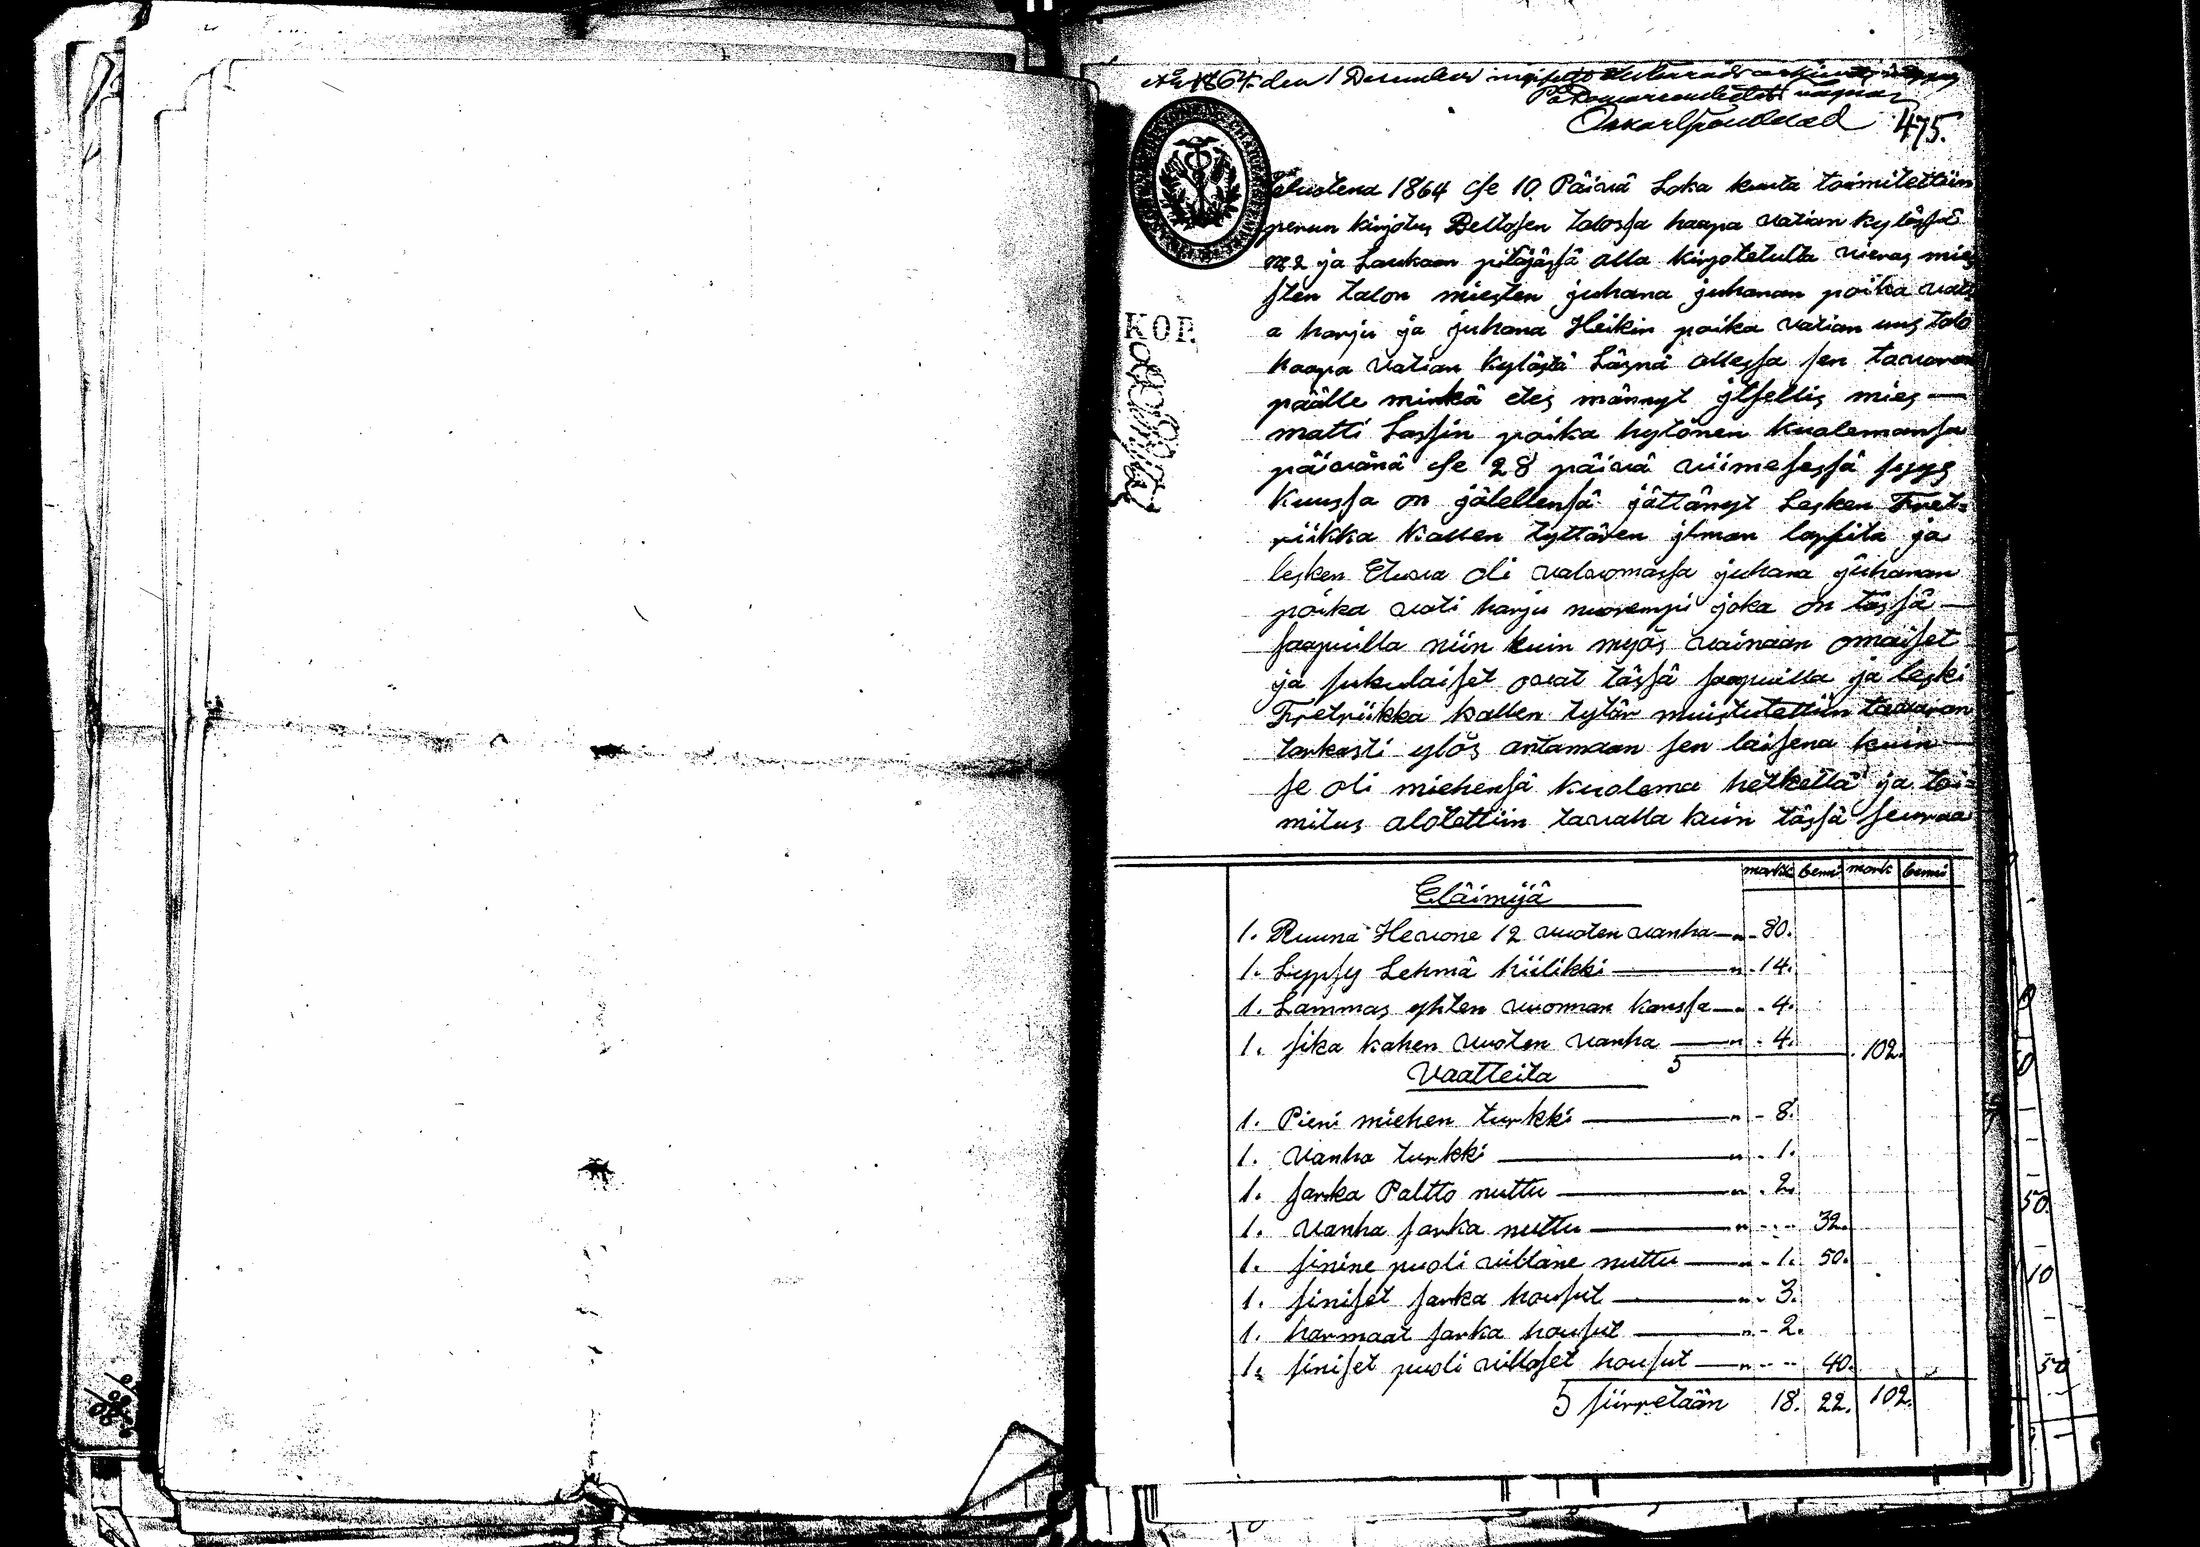 År 1864 den 1 December
På Domareembetets vägnar
475.
Vuonna 1864 Se 10. Päivä Loka kuuta toimitettiin
perun kirjotus Peltosen talossa haapa vatian kylässä
N: 2 ja Laukaan pitäjässä alla kirjotetulta vieras mies
sten talon miesten juhana juhanan poika vati
a harju ja juhana Heikin poika vatian uus talo
haapa vatian kylästä Läsnä ollessa sen tavaran
päälle minkä etes männyt jtsellis mies —
matti Lassin poika hytönen kuolemansa
päivänä Se 28 päivä viimesessä syys
kuussa on jälellensä jättänyt Lesken Fret-
riikka Kallen tyttären jlman lapsita ja
lesken Etuva oli valvomassa juhana juhanan
poika vati harju nuorempi joka on tässä —
saapuilla niin kuin myös vainaan omaiset
ja sukulaiset ovat tässä saapuilla ja leski
Fretriikka kallen tytär muistutettiin tavaran
tarkasti ylös antamaan sen laisena kuin —
se oli miehensä kuolema hetkellä ja toi-
mitus alotettiin tavalla kuin tässä seuraa
markk penni mark penni
Eläimijä
1. Ruuna Hevone 12 vuoten vanha — " - 80.
1. Lypsy Lehmä hiilikki — " - 14.
1. Lammas yhten vuonnan kanssa — " - 4.
1. sika kahen vuoten vanha — " - 4. 102.
Vaatteita 5
1. Pieni miehen turkki — " - 8.
1. vanha turkki — " - 1.
1. sarka Paltto nuttu — " - 2.
1. vanha sarka nuttu — " - - - 32.
1. sinine puoli villane nuttu — " - 1. 50.
1. siniset sarka housut — " - 3.
1. harmaat sarka housut — " - 2.
1. siniset puoli villaset housut — " - - - 40.
5 siirretään 18. 22. 102.
KOP.
50.
10
50